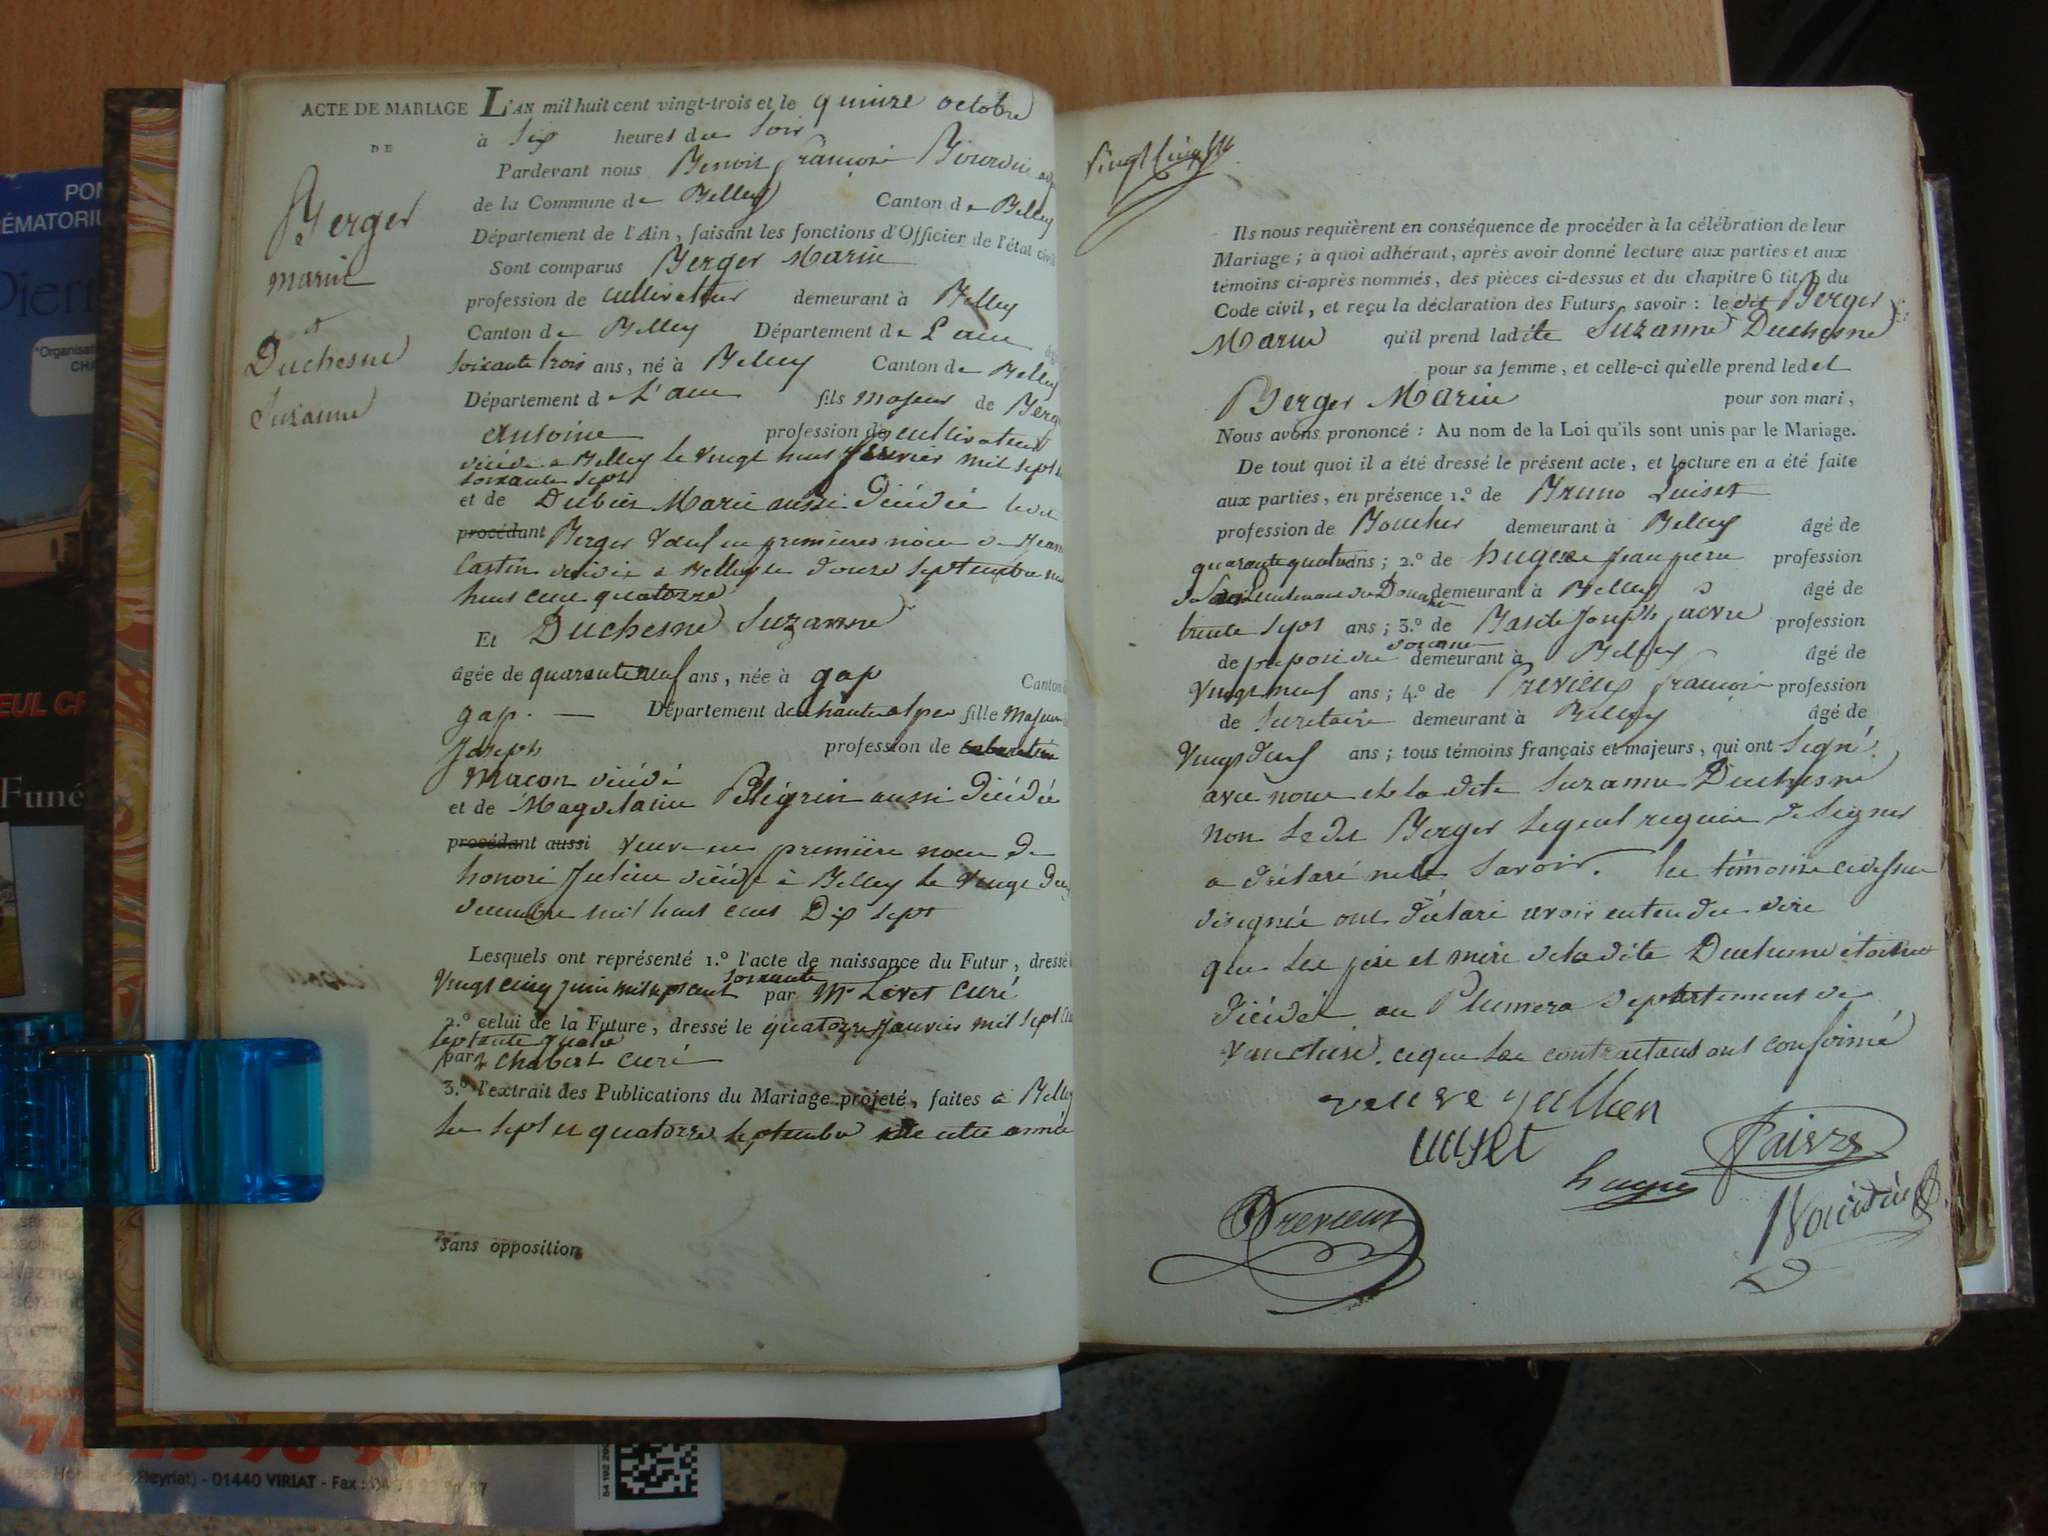 ACTE DE MARIAGE
DE
Berger
marin
et
Duchesne
Suzanne
L'AN mil huit cent vingt-trois et le quinze octobre
à six heures du soir
Pardevant nous Benoit françois
de la Commune de Belley Canton de Belley
Département de l'Ain, faisant les fonctions d'Officier de l'état civil
Sont comparus Berger Marin
profession de cultivateur demeurant à Belley
Canton de Belley Département de L'ain
soixante trois ans, né à Belley Canton de Belley
Département d L'ain fils majeur de Berger
antoine profession de cultivateur
décédé a Belley le vingt huit février mil sept
soixante sept
et de Dubiez Marie aussi décédée ledit
procédant Berger veuf en premières noces de
Castin décédée a Belley le douze septembre mil
huit cent quatorze
Et Duchesne Suzanne
âgée de quarante neuf ans, née à gap Canton d
gap. — Département des hautes alpes fille majeure
Joseph profession de
maçon décédé
et de Magdelaine Pélégrin aussi décédée
procédant aussi veuve en première noce de
honoré Julien décédé à Belley le vingt deux
décembre mil huit cent Dix sept
Lesquels ont représenté 1.º l'acte de naissance du Futur, dressé
vingt cinq juin mil sept cent soixante par Mr Levet curé
2.º celui de la Future, dressé le quatorze janvier mil sept cent
septante quatre
par chabert curé
3.º l'extrait des Publications du Mariage projeté, faites à Belley
les sept et quatorze septembre de cette année
sans opposition
Ils nous requièrent en conséquence de procéder à la célébration de leur
Mariage ; à quoi adhérant, après avoir donné lecture aux parties et aux
témoins ci-après nommés, des pièces ci-dessus et du chapitre 6 tit. 5 du
Code civil, et reçu la déclaration des Futurs, savoir : le dit Berger
Marin qu'il prend ladite Suzanne Duchesne
pour sa femme, et celle-ci qu'elle prend ledit
Berger Marin pour son mari,
Nous avons prononcé : Au nom de la Loi qu'ils sont unis par le Mariage.
De tout quoi il a été dressé le présent acte, et lecture en a été faite
aux parties, en présence 1.º de Bruno Luiset
profession de Boucher demeurant à Belley âgé de
quarante quatre ans ; 2.º de hugues jean pierre profession
de Lieutenant des Douanes demeurant à Belley âgé de
trente sept ans ; 3.º de Basile Joseph faivre profession
de préposé des douanes demeurant à Belley âgé de
vingt neuf ans ; 4.º de Previeux françois profession
de secretaire demeurant à Belley âgé de
vingt deux ans ; tous témoins français et majeurs, qui ont signé
avec nous et la dite Suzanne Duchesne
non le dit Berger lequel requis de signer
a déclaré ne le savoir. les témoins ci dessus
désignés ont déclaré avoir entendu dire
que les père et mère de la dite Duchesne étoient
décédés au département de
vaucluse. ce que les contractans ont confirmé
veuve jullien
luiset
faivre
hugues
Previeux
PON
ÉMATORIU
Pierr
*Organisat
CHA
EUL CH
Funé
01440 VIRIAT - Fax :